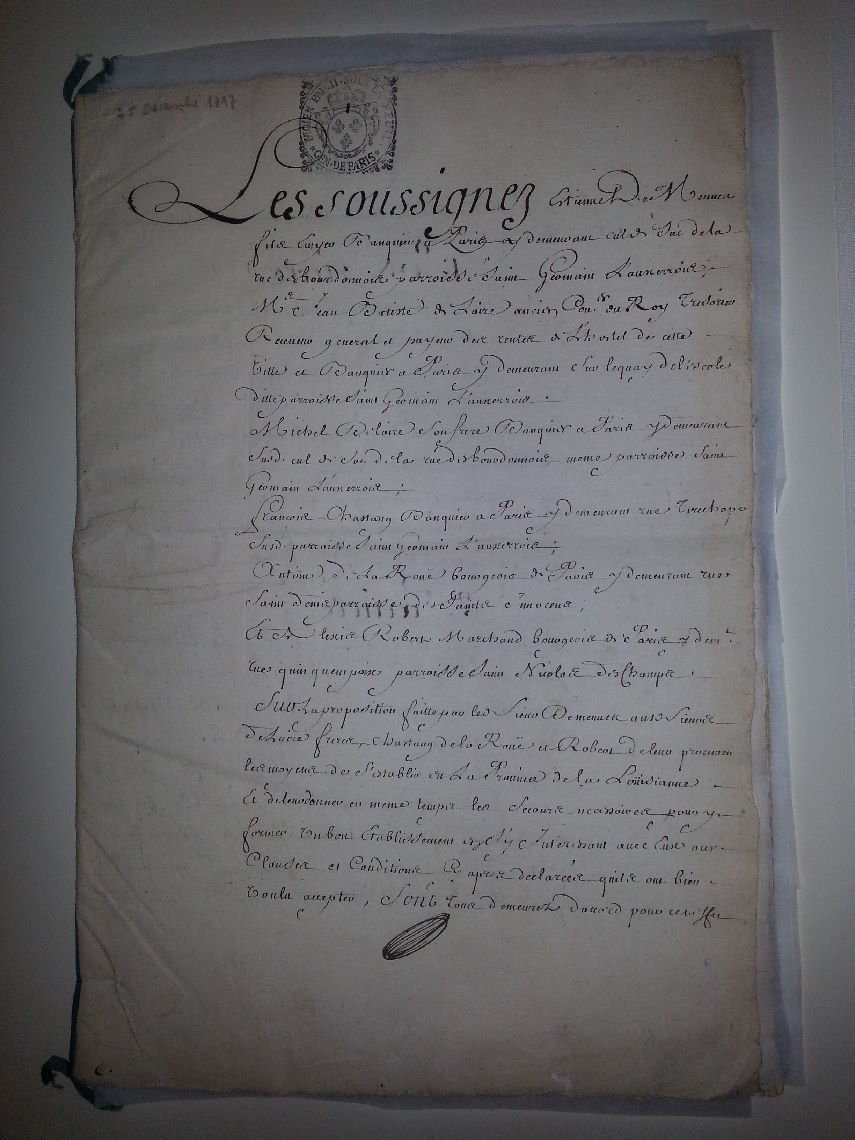 25 Décembre 1717
MOYEN PAP. II. SOLS LA FEUILLE
GEN. DE PARIS
Les soussignez Estienne De Meuues
fils Banquier a Paris y demeurant cul de Sac de la
rue des bourdonnois parroisse Saint Germain L'auxerrois;
Me Jean Batiste de Loire ancien Conr du Roy Tresorier
Receueur general et payeur des rentes de L'hostel de cette
Ville et Banquier a Paris y demeurant sur le quay de l'escole
ditte parroisse Saint Germain L'auxerrois.
Michel De loire son frere Banquier a Paris y demeurant
susd. cul de Sac de la rue des bourdonnois meme parroisse Saint
Germain L'auxerrois;
françois Chastang Banquier a Paris y demeurant rue Tirechape
susd. parroisse Saint Germain L'auxerrois;
Antoine de La Roüe bourgeois de Paris y demeurant rue
Saint Denis parroisse des Saints innocens;
Et Robert Marchand bourgeois de Paris y demt
rue quinquempoix parroisse Saint Nicolas des Champs.
Sur La proposition faitte par le Sieur Demeuues aux Sieurs
de Loire freres, Chastang de la Roüe et Robert de leur procurer
les moyens de S'establir en La Prouince de la Loüisianne
Et de leur donner en meme temps les Secours necessaires pour y
former un bon Etablissement en S'y Interessant auec Eux aux
Clauses et Conditions Cy apres declarées qu'ils ont bien
Voulu accepter, Sont tous demeurez d'acord pour cet effet